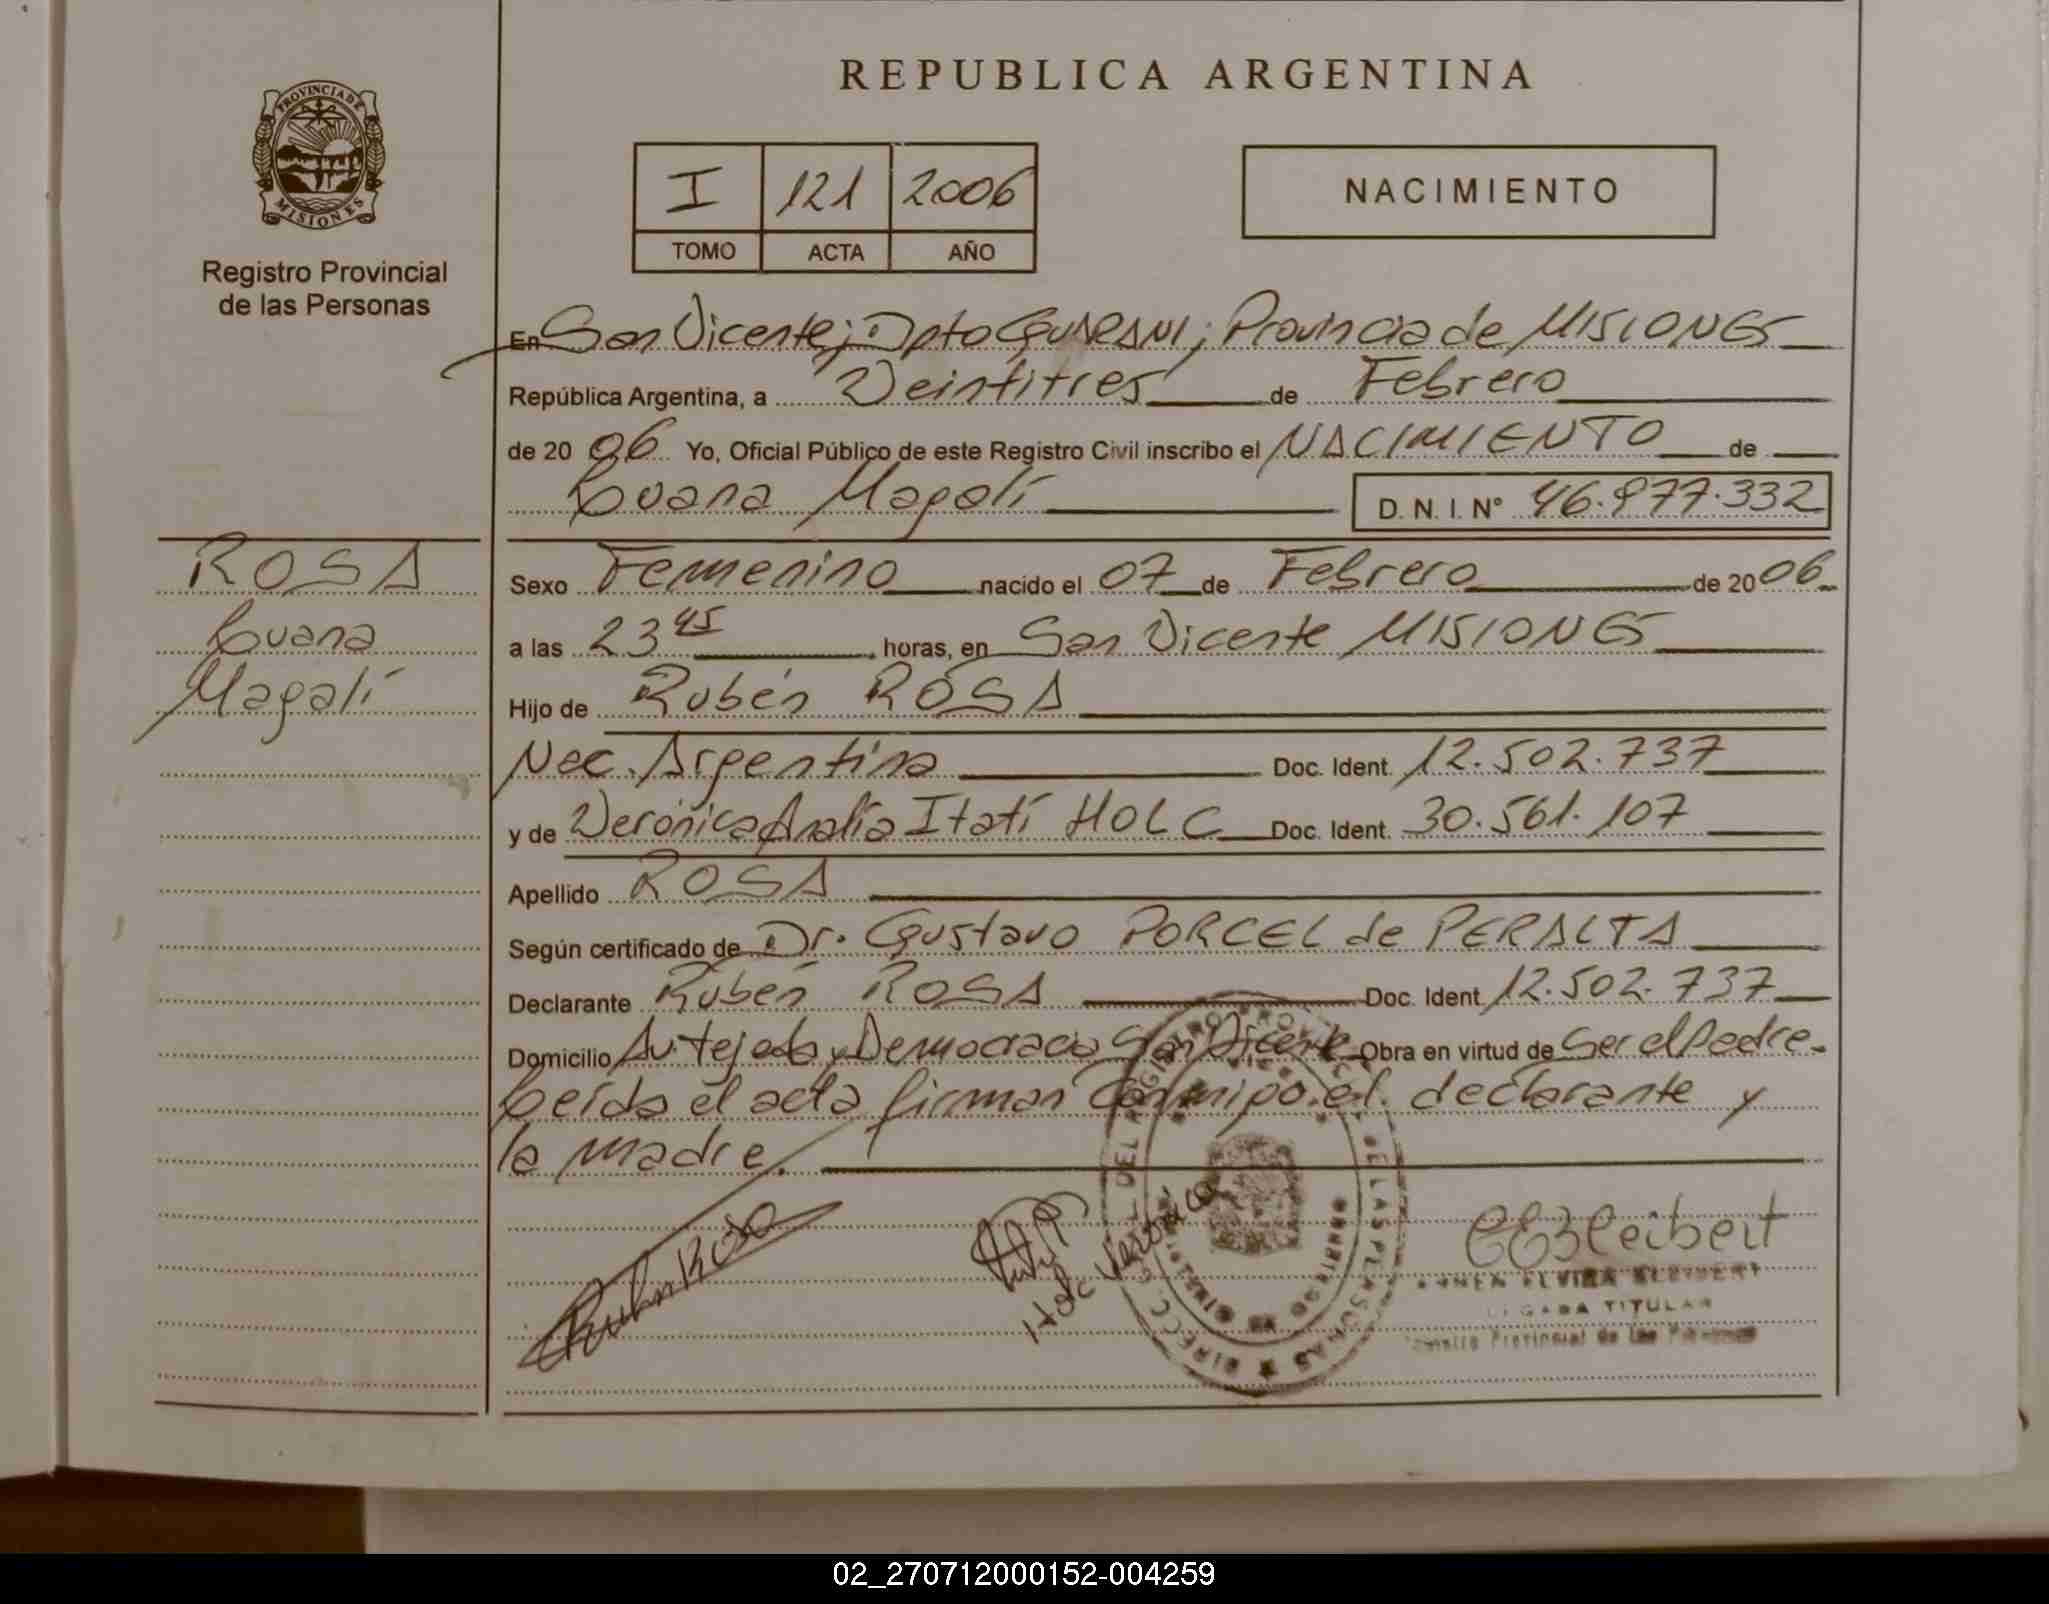 PROVINCIA DE
MISIONES
Registro Provincial
de las Personas
ROSA
Luana
Magalí
REPUBLICA ARGENTINA
I 121 2006
TOMO ACTA AÑO
NACIMIENTO
En San Vicente; Dpto GUARANI; Provincia de MISIONES
República Argentina, a Veintitres de Febrero
de 20 06 Yo, Oficial Público de este Registro Civil inscribo el NACIMIENTO de
Luana Magalí D. N. I. N° 46.977.332
Sexo Femenino nacido el 07 de Febrero de 20 06
a las 23 45 horas, en San Vicente MISIONES
Hijo de Rubén ROSA
Nac. Argentina Doc. Ident. 12.502.737
y de Verónica Analía Itatí HOLC Doc. Ident. 30.561.107
Apellido ROSA
Según certificado de Dr. Gustavo PORCEL de PERALTA
Declarante Rubén ROSA Doc. Ident 12.502.737
Domicilio Av. Tejeda y Democracia San Vicente Obra en virtud de Ser el Padre.
Leída el acta firman conmigo el declarante y
la madre.
Rubn Rosa
Holc Veronica
DEL REGISTRO PROVINCIAL DE LAS PERSONAS
ELVIRA KLEIBERT
TITULAR
Provincial de las Personas
02_270712000152-004259